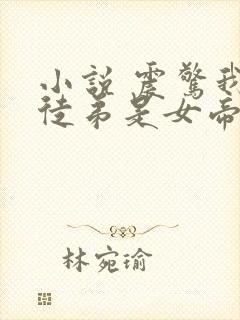 小説 震驚我
徒弟是女帝
林宛瑜